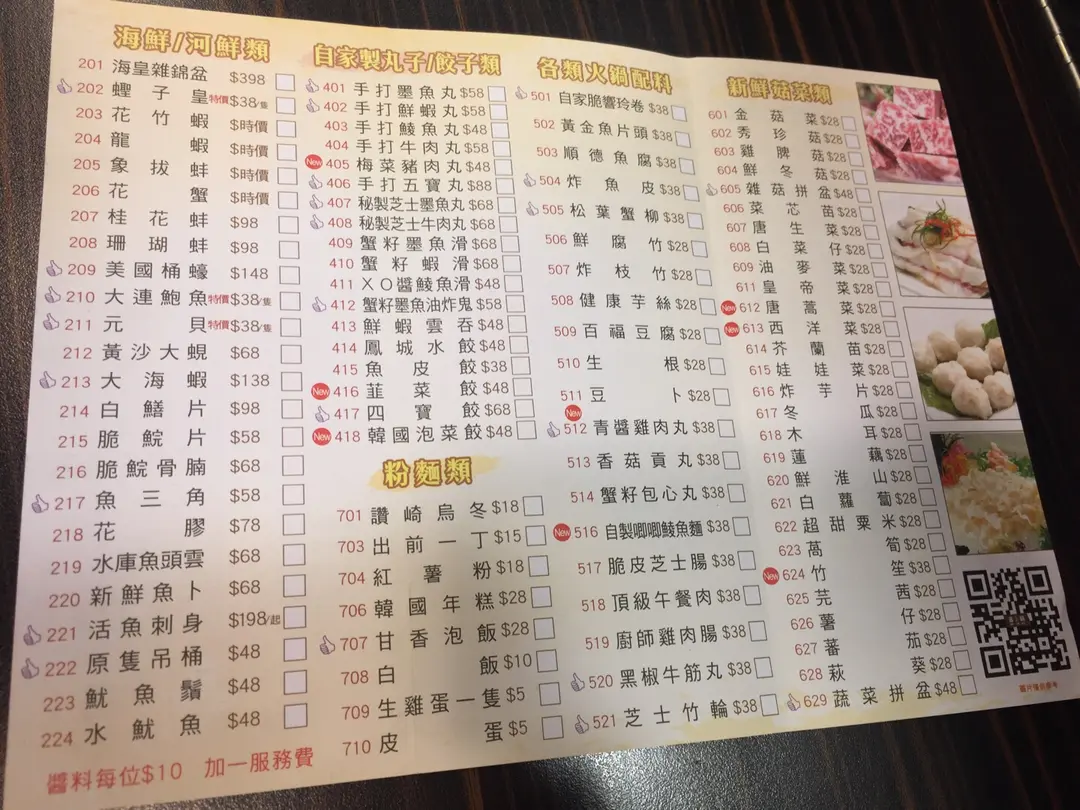 海鮮/河鮮類
201 海皇雜錦盆 $398
202 蟶子皇 特價$38/隻
203 花竹蝦 $時價
204 龍蝦 $時價
205 象拔蚌 $時價
206 花蟹 $時價
207 桂花蚌 $98
208 珊瑚蚌 $98
209 美國桶蠔 $148
210 大連鮑魚 特價$38/隻
211 元貝 特價$38/隻
212 黃沙大蜆 $68
213 大海蝦 $138
214 白鱔片 $98
215 脆鯇片 $58
216 脆鯇骨腩 $68
217 魚三角 $58
218 花膠 $78
219 水庫魚頭雲 $68
220 新鮮魚卜 $68
221 活魚刺身 $198/起
222 原隻吊桶 $48
223 魷魚鬚 $48
224 水魷魚 $48
醬料每位$10 加一服務費
自家製丸子/餃子類
401 手打墨魚丸 $58
402 手打鮮蝦丸 $58
403 手打鯪魚丸 $48
404 手打牛肉丸 $58
New 405 梅菜豬肉丸 $48
406 手打五寶丸 $88
407 秘製芝士墨魚丸 $68
408 秘製芝士牛肉丸 $68
409 蟹籽墨魚滑 $68
410 蟹籽蝦滑 $68
411 XO醬鯪魚滑 $48
412 蟹籽墨魚油炸鬼 $58
413 鮮蝦雲吞 $48
414 鳳城水餃 $48
415 魚皮餃 $38
New 416 韮菜餃 $48
417 四寶餃 $68
New 418 韓國泡菜餃 $48
粉麵類
701 讚崎烏冬 $18
703 出前一丁 $15
704 紅薯粉 $18
706 韓國年糕 $28
707 甘香泡飯 $28
708 白飯 $10
709 生雞蛋一隻 $5
710 皮蛋 $5
各類火鍋配料
501 自家脆響玲卷 $38
502 黃金魚片頭 $38
503 順德魚腐 $38
504 炸魚皮 $38
505 松葉蟹柳 $38
506 鮮腐竹 $28
507 炸枝竹 $28
508 健康芋絲 $28
509 百福豆腐 $28
510 生根 $28
511 豆卜 $28
New
512 青醬雞肉丸 $38
513 香菇貢丸 $38
514 蟹籽包心丸 $38
New 516 自製唧唧鯪魚麵 $38
517 脆皮芝士腸 $38
518 頂級午餐肉 $38
519 廚師雞肉腸 $38
520 黑椒牛筋丸 $38
521 芝士竹輪 $38
新鮮菇菜類
601 金菇菜 $28
602 秀珍菇 $28
603 雞脾菇 $28
604 鮮冬菇 $28
605 雜菇拼盆 $48
606 菜芯苗 $28
607 唐生菜 $28
608 白菜仔 $28
609 油麥菜 $28
611 皇帝菜 $28
New 612 唐蒿菜 $28
New 613 西洋菜 $28
614 芥蘭苗 $28
615 娃娃菜 $28
616 炸芋片 $28
617 冬瓜 $28
618 木耳 $28
619 蓮藕 $28
620 鮮淮山 $28
621 白蘿蔔 $28
622 超甜粟米 $28
623 萵筍 $28
New 624 竹笙 $38
625 芫茜 $28
626 薯仔 $28
627 蕃茄 $28
628 萩葵 $28
629 蔬菜拼盆 $48
圖片僅供參考